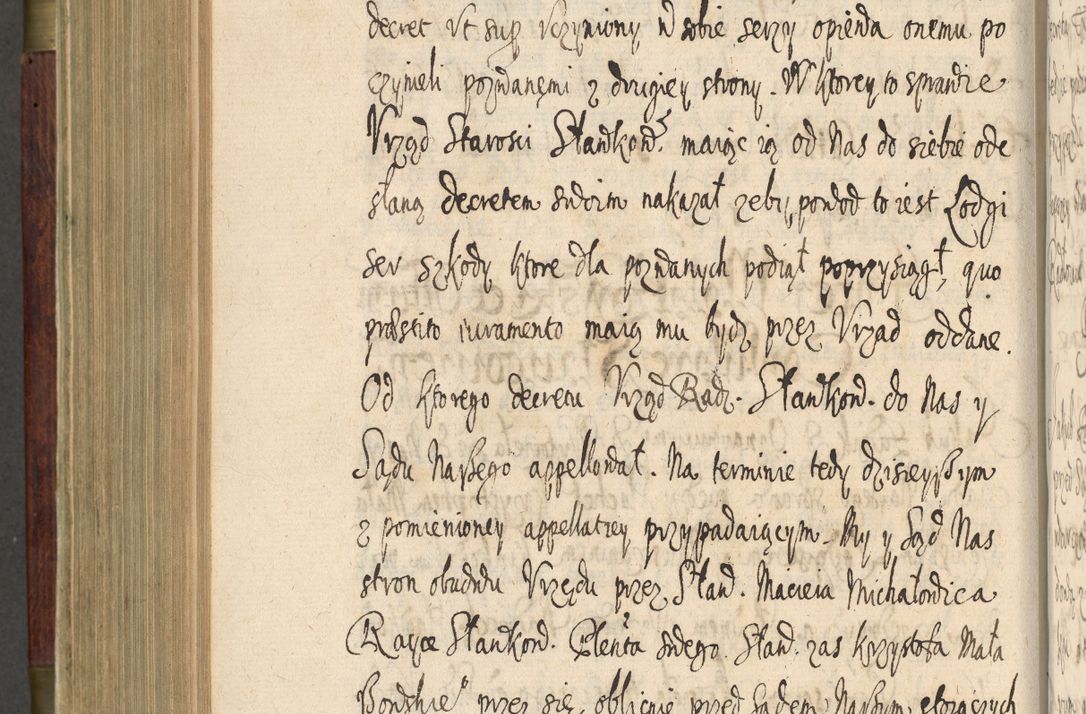 decret vt sup vczyniony w sobie serzy opiewa onemu po
czynieli pozwanęmi z drugiey strony. W ktorey to sprawie
Vrząd Starosci Sławkow. maiąc ią od Nas do siebie ode
słaną decretem swoim nakazał zeby powod to iest Łodgi
ser szkody ktore dla pozwanych podiął poprzysiągł, quo
præstito iuramento maią mu bydz przez Vrząd oddane.
Od ktorego decretu Vrząd Radz. Sławkow. do Nas y
Sądu Naszego appellował. Na terminie tedy dzisieyszym
z pomienioney appellatiey przypadaiącym. My y Sąd Nas
stron obudwu Vrzędu przez Sław. Macieia Michałowica
Rayce Sławkow. Plenta swego. Sław. zas Krzysztofa Mała
przez się, oblicnie przed Sądem Naszym stoiących